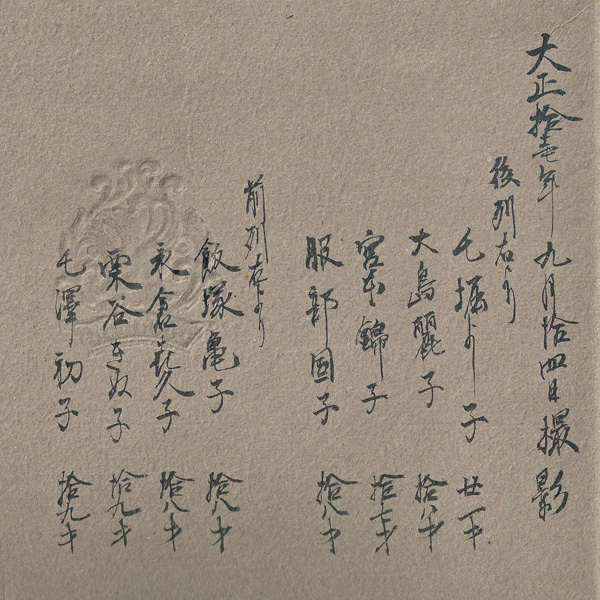 大正拾壱年九月拾四日撮影
後列右より
七掘よし子 廿一才
大島麗子 拾八才
宮本錦子 拾七才
服部国子 拾八才
前列右より
飯塚亀子 拾八才
永倉喜久子 拾八才
栗谷きぬ子 拾九才
七澤初子 拾九才